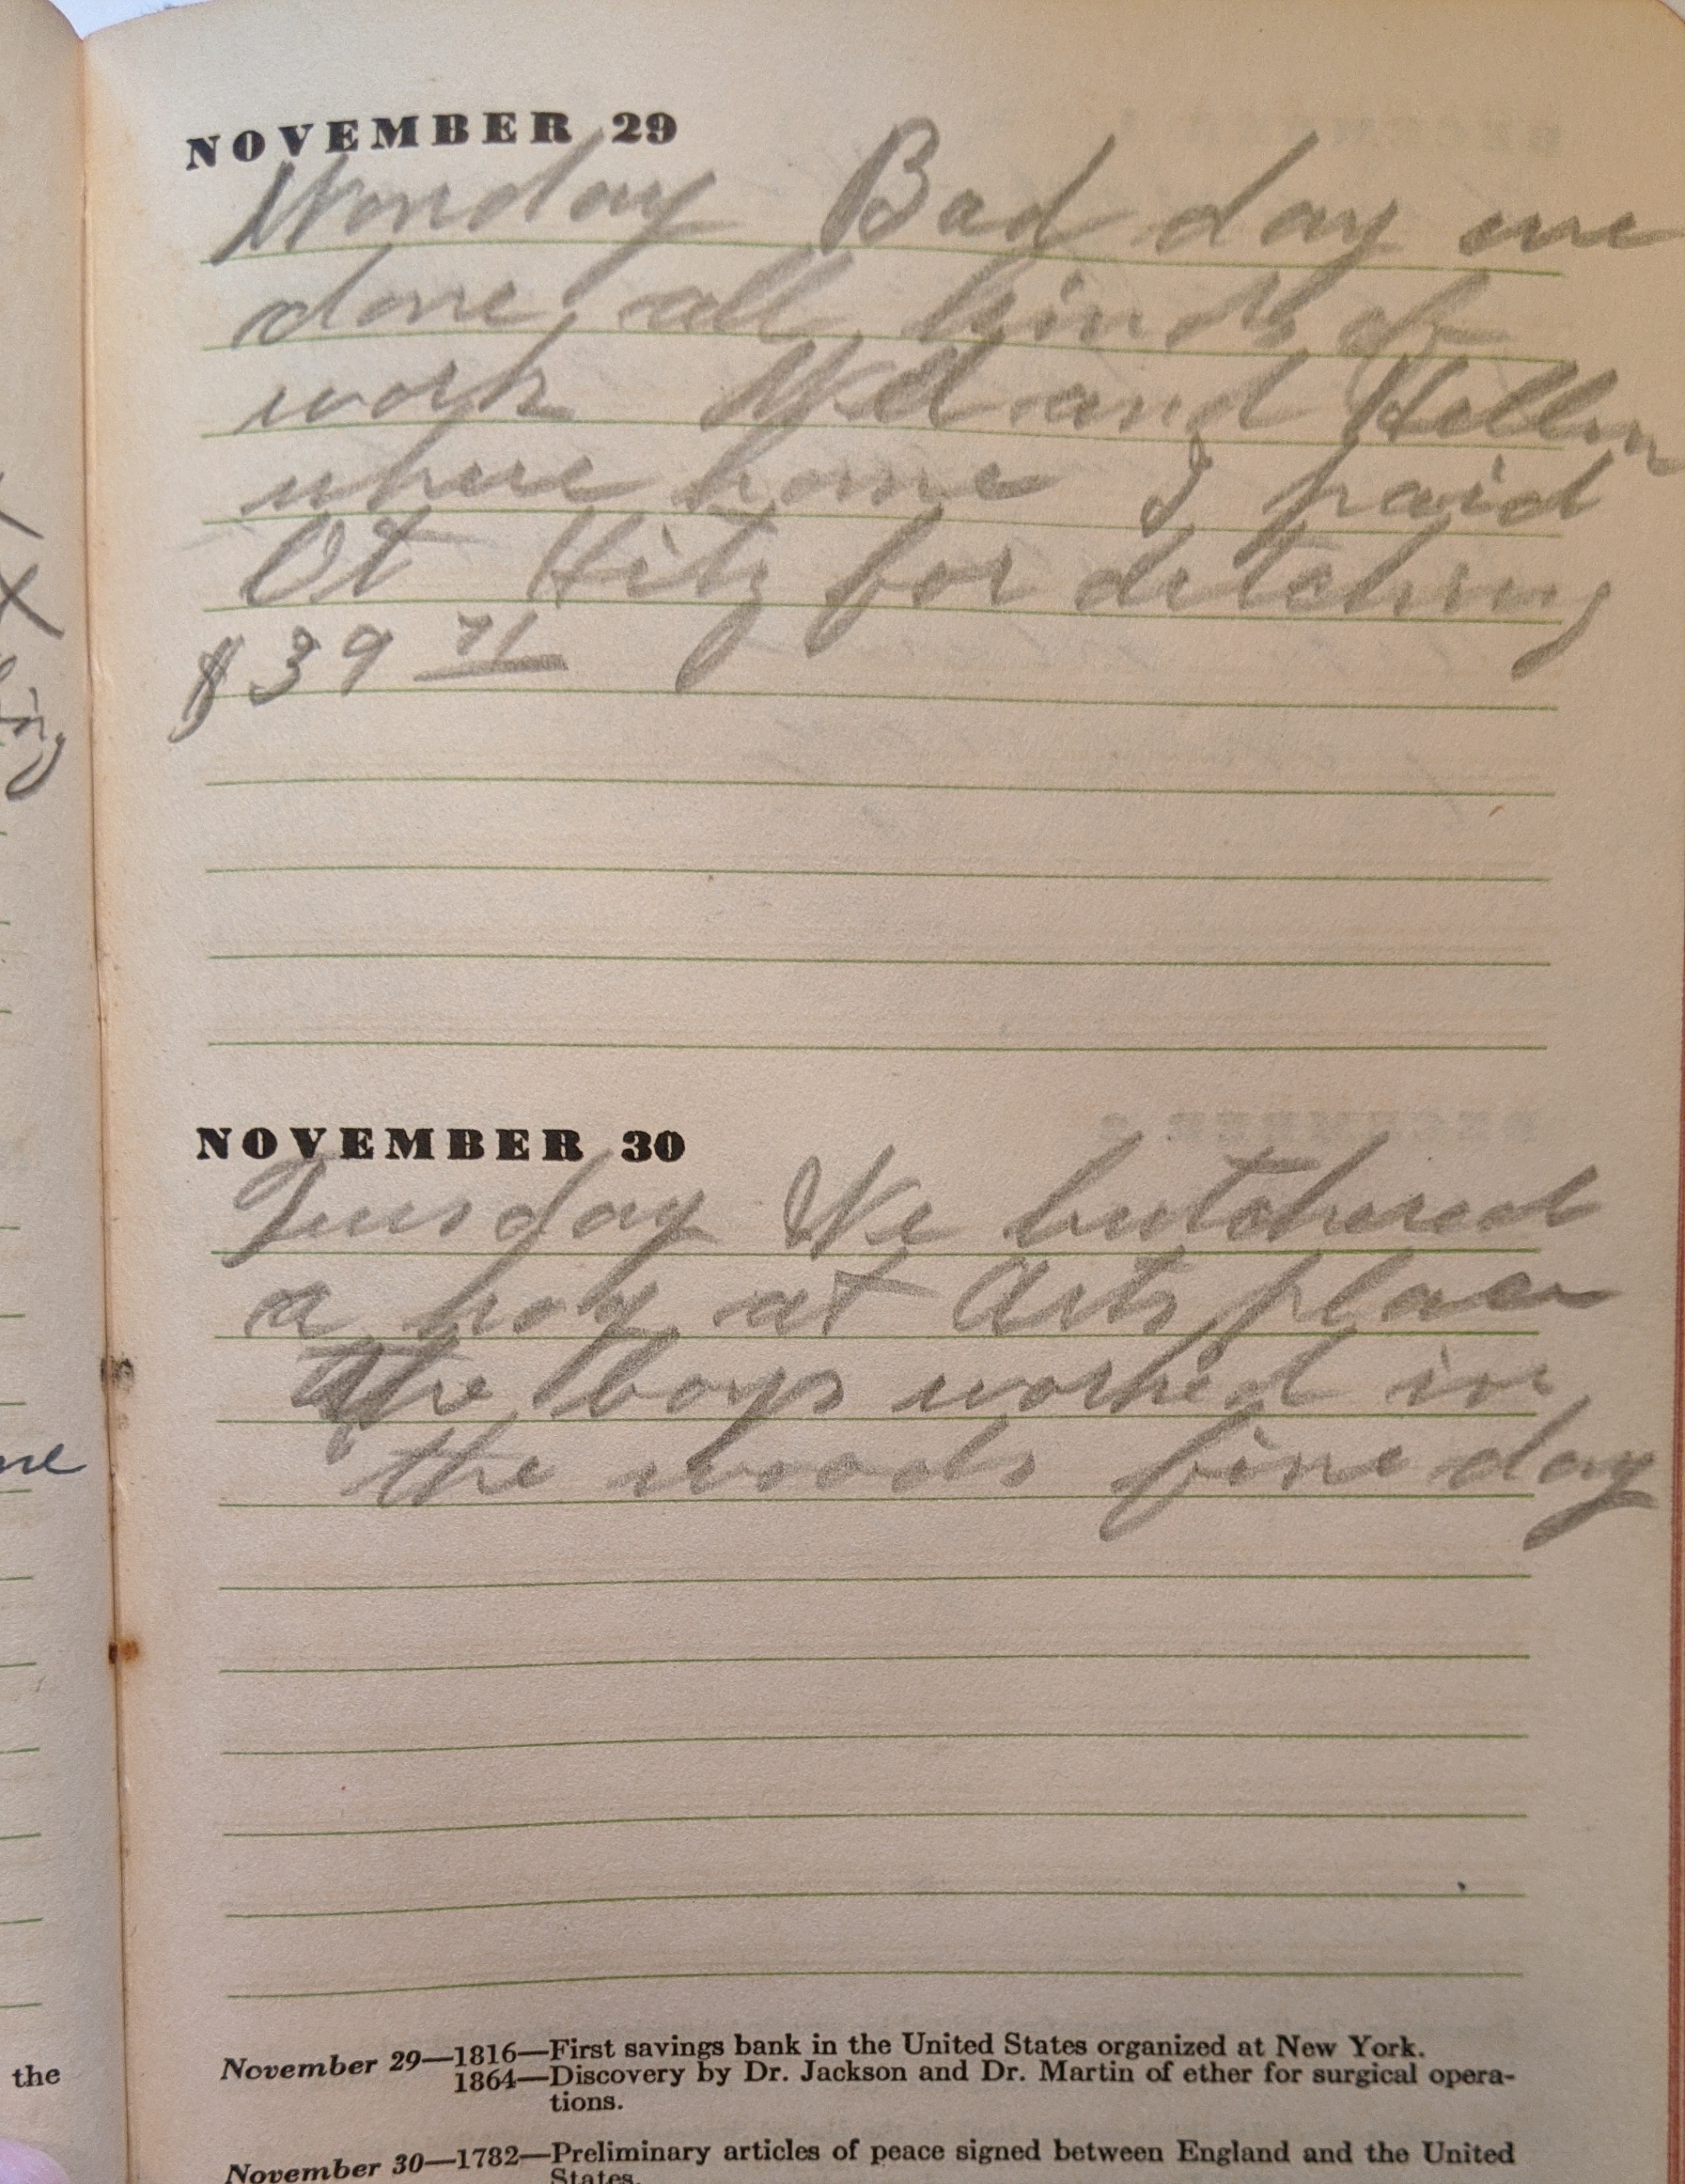 NOVEMBER 29
Monday Bad day we
done all kinds of
work Ned and Hellen
where home I paid
Ot Hitz for ditching
$39 71
NOVEMBER 30
Tuesday We butchered
a hog at Arts place
The boys worked in
the woods fine day
November 29—1816—First savings bank in the United States organized at New York.
1864—Discovery by Dr. Jackson and Dr. Martin of ether for surgical opera-
tions.
November 30—1782—Preliminary articles of peace signed between England and the United
States.
the